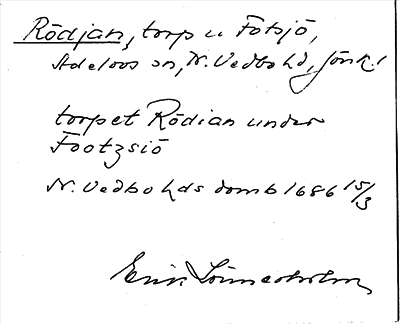 Rödjan, torp u Fotsjö,
Adelövs sn, N. Vedbo hd, Jönk. l
torpet Rödian under
Footzsiö
N. Vedbo hds domb 1686 15/3
Erik